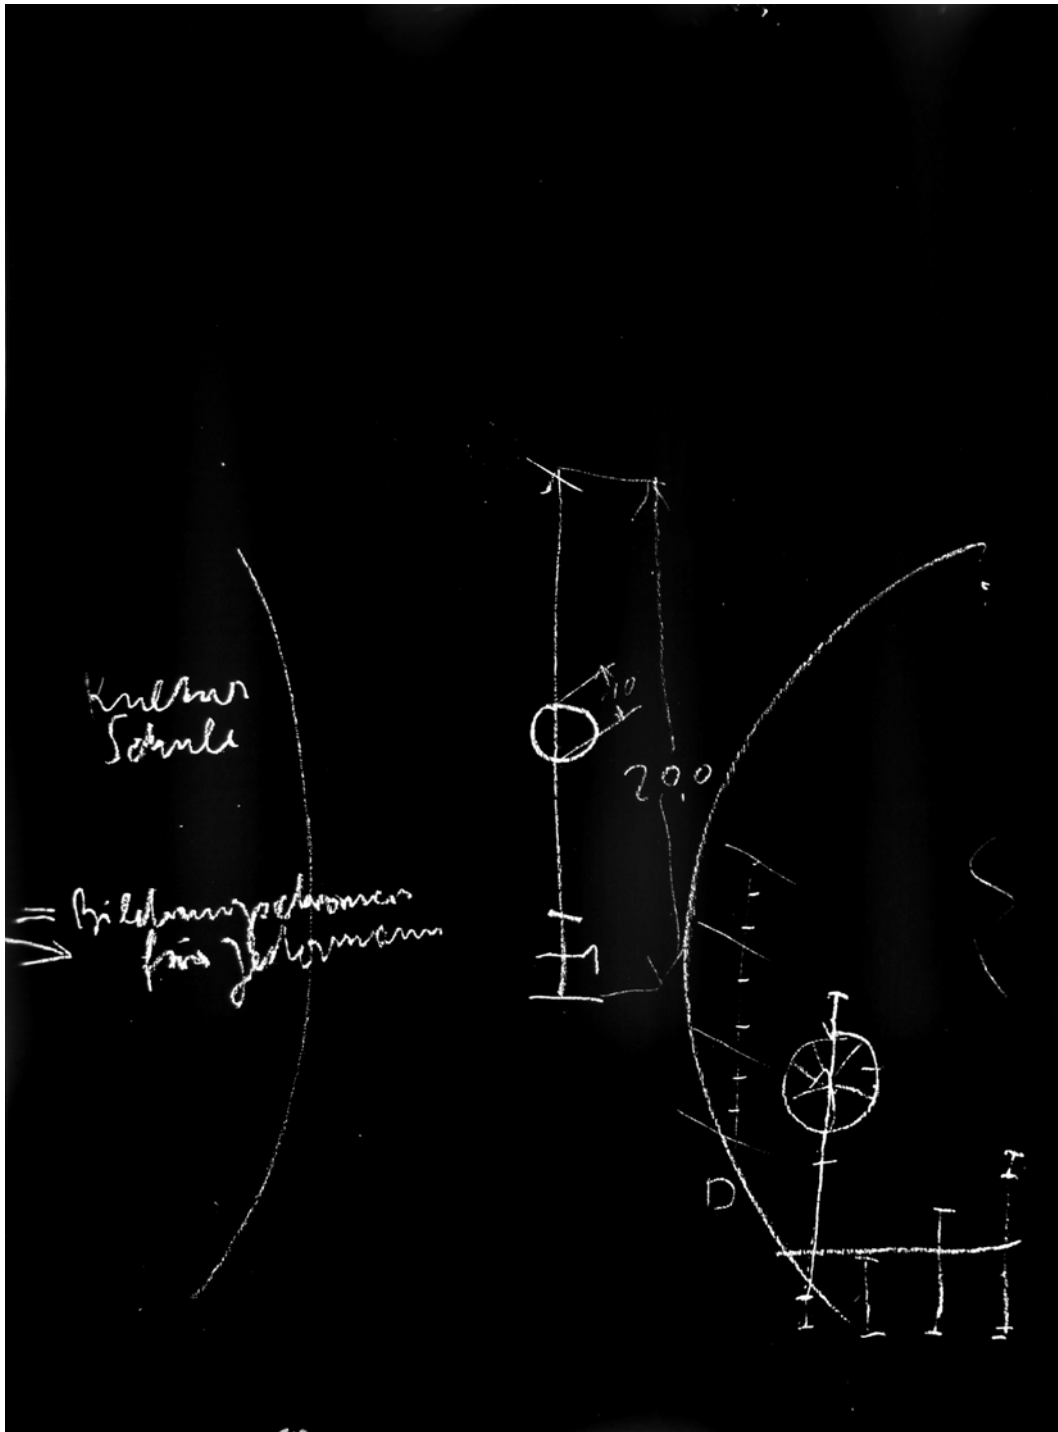 Kultur
Schule
= Bildungschancen
für Jedermann
10
20,0
D